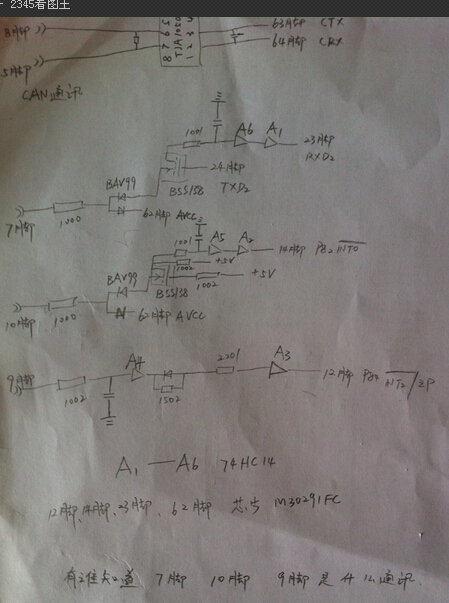 2345看图王
8脚
5 6 7 8
TJA1050
4 3 2 1
63脚 CTX
64脚 CRX
5脚
CAN通讯
1001 A6 A1 23脚
RXD2
24脚
TXD2
BSS138
BAV99
1000
7脚
62脚 AVCC
1001 A5 A2 14脚 P82 INT0
1002 +5V
1002 +5V
BAV99
BSS138
10脚 1000
62脚 AVCC
9脚
1002
A4
1502
2201
A3
12脚
INT2/ZP
A1 — A6 74HC14
12脚、14脚、23脚、62脚 芯片 M30291FC
有谁知道 7脚 10脚 9脚 是什么通讯.